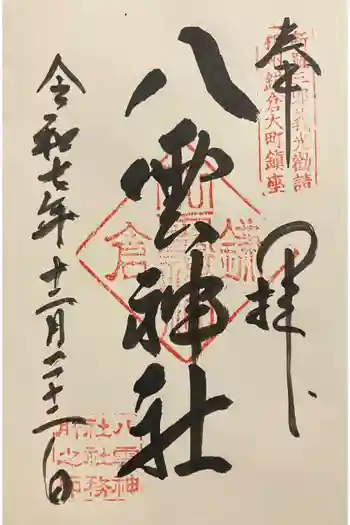 奉拝
新羅三郎義光勧請
相州鎌倉大町鎮座
八雲神社
鎌倉
八雲神
社社務
所之印
令和七年十二月二十二日